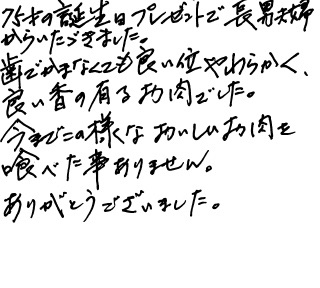 75才の誕生日プレゼントで長男夫婦
からいただきました。
歯でかまなくても良い位やわらかく、
良い香の有るお肉でした。
今までこの様なおいしいお肉を
喰べた事ありません。
ありがとうございました。